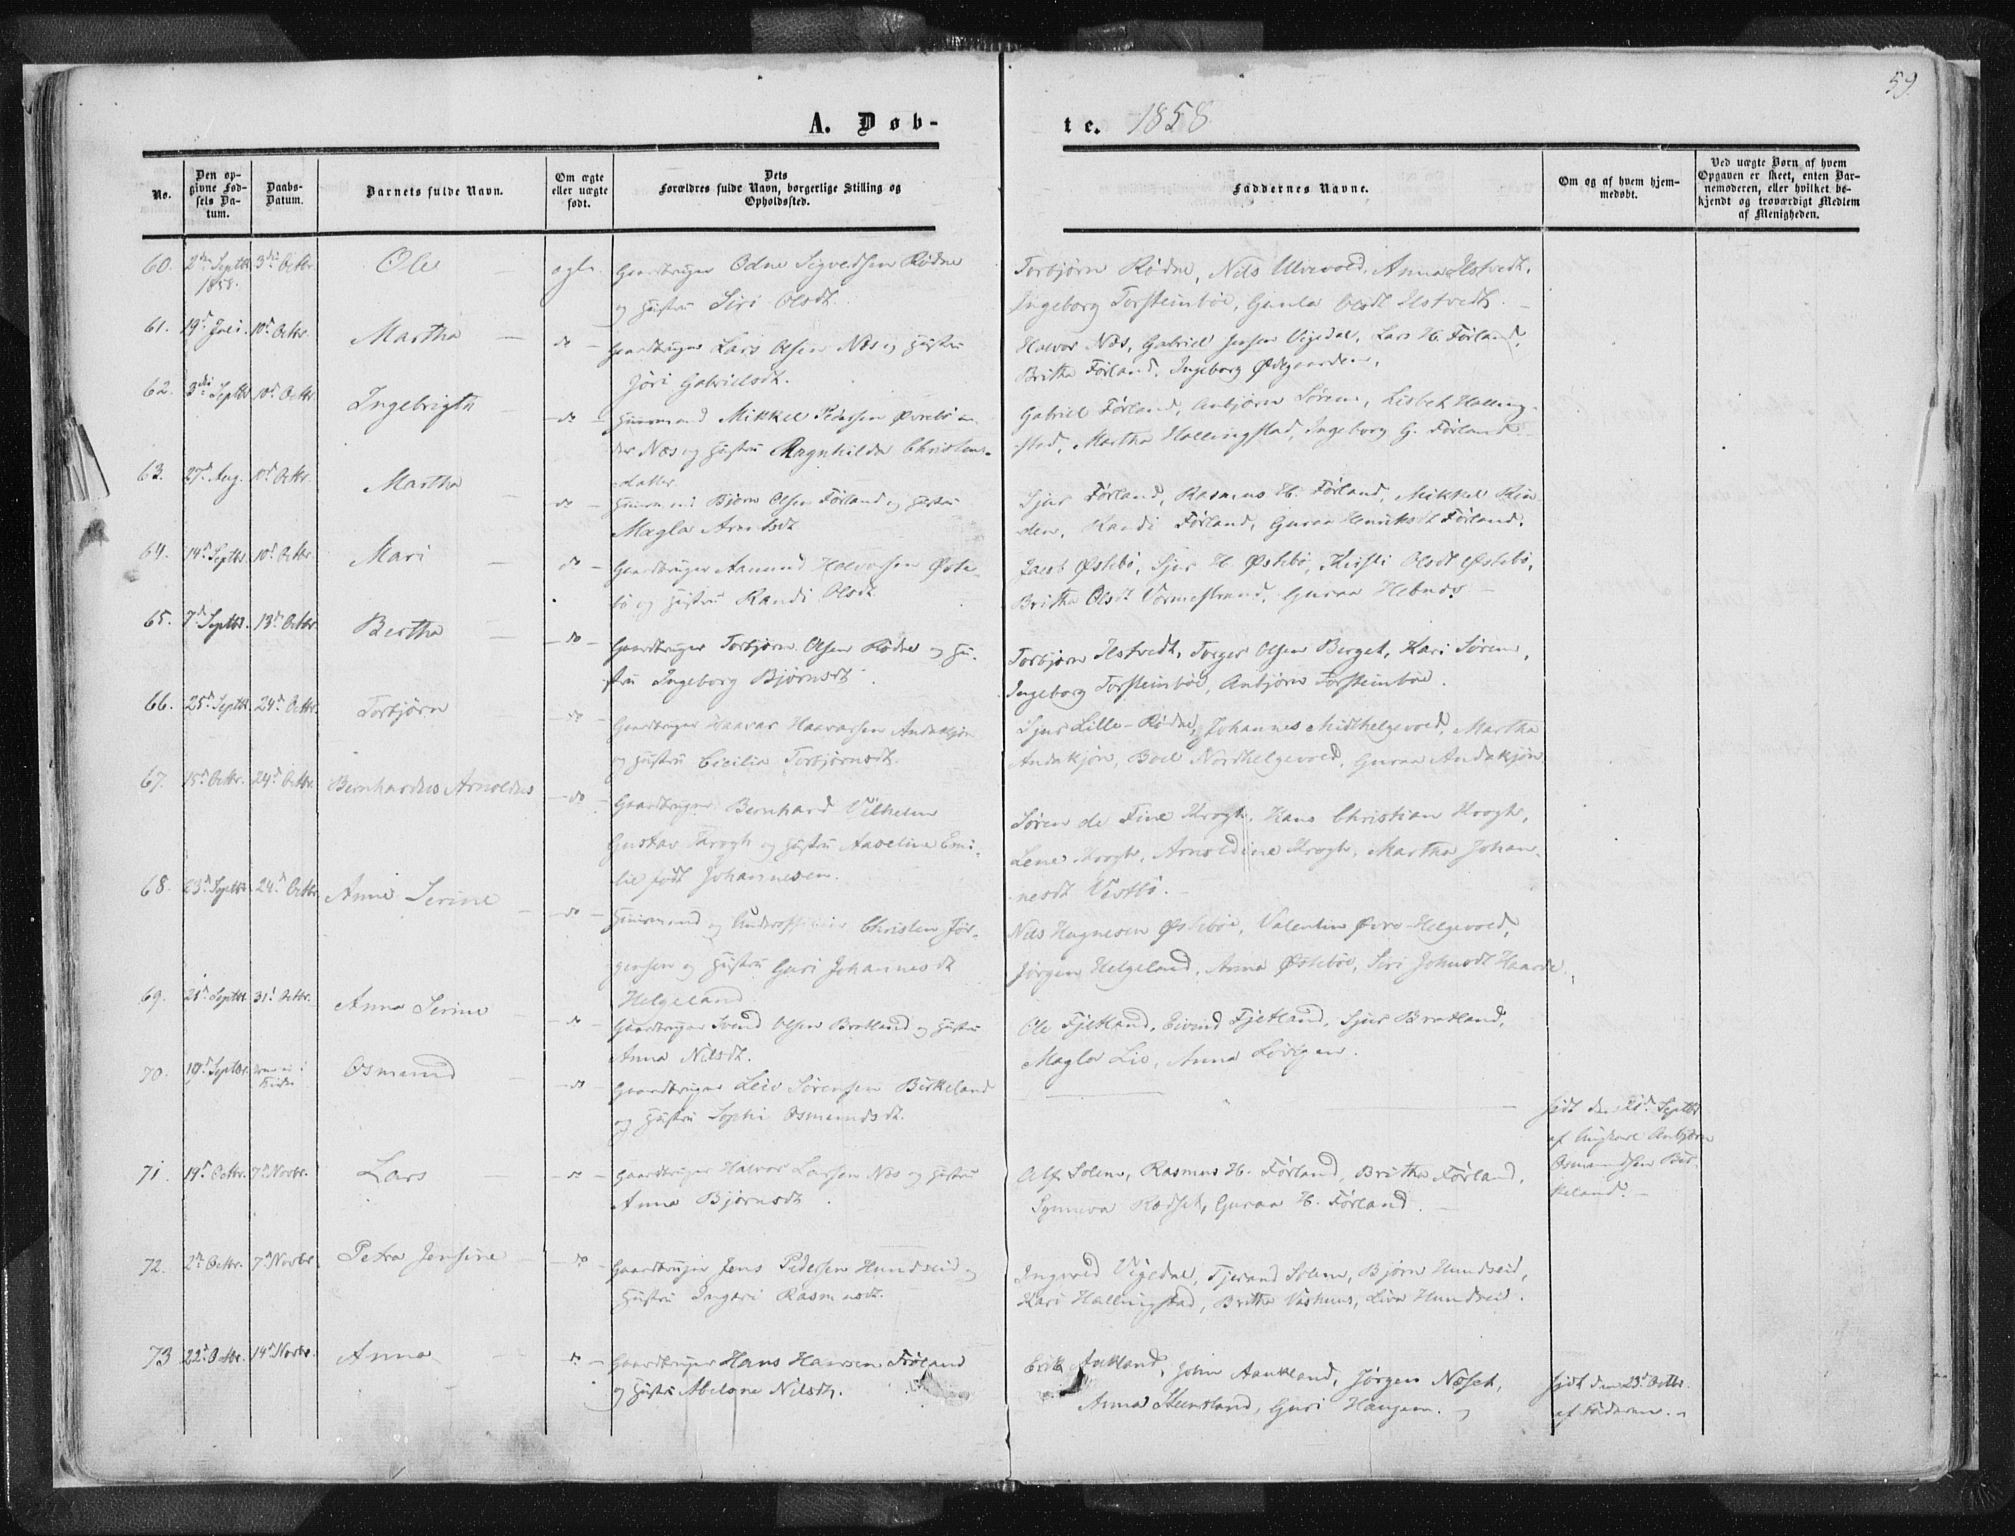 59.
A. Døb-
te. 1858
No.
Den op-
givne Fød-
sels Da-
tum.
Daabs-
Datum.
Barnets fulde Navn.
Om ægte
eller uægte
født.
Dets
Forældres fulde Navn, borgerlige Stilling og
Opholdssted.
Faddernes Navne.
Om og af hvem hjem-
medøbt.
Ved uægte Børn af hvem
Opgaven er skeet, enten Bar-
nemoderen, eller hvilket be-
kjendt og troværdigt Medlem
af Menigheden.
60. Septbr 3 Octbr. Ole ægte. Gaardbruger Odne Sigvedsen Rødne
1858.
og Hustru Siri Olsdt.
Torbjørn Rødne, Nils Ulvevold, Anna Ilstvedt,
Ingeborg Torsteinbøe, Gunla Olsdt Ilstvedt.
61. 19d Juli. 10d Octbr. Martha — do — Gaardbruger Lars Olsen Næs og Hustru
Jöri Gabrielsdt.
Halvor Næs, Gabriel Jensen Vigedal, Lars H. Førland,
Britha Førland, Ingeborg Ødegaarden.
62. 3die Septbr 10d Octbr. Ingebrigta — do — Huusmand Mikkel Pedersen Øvrebø un-
der Næs og Hustru Ragnhilda Christens-
datter.
Gabriel Førland, Anbjørn Sørem, Lisbet Halling-
stad, Martha Hallingstad, Ingeborg G. Førland.
63. 27d Aug. 10d Octbr. Martha — do — Huusmand Bjørn Olsen Førland og Hustru
Magla Arentsdt
Sjur Førland, Rasmus H. Førland, Mikkel Rin-
den, Randi Førland, Guraa Henriksdt Førland.
64. 14d Septbr 10d Octbr. Mari — do — Gaardbruger Aamund Halvorsen Øste-
bø og Hustru Randi Olsdt.
Jacob Østebø, Sjur H. Østebø, Kirsti Olsdt Østebø,
Britha Olsdt Vormestrand, Guraa Hebnes —
65. 7d Septbr. 13d Octbr. Bertha — do — Gaardbruger Torbjørn Olsen Rødne og Hu-
stru Ingeborg Bjørnsdt.
Torbjørn Ilstvedt, Torger Olsen Berget, Kari Sørem,
Ingeborg Torsteinbøe, Anbjørn Torsteinbøe.
66. 25d Septbr 24d Octbr. Torbjørn — do — Gaardbruger Haavar Haavarsen Andakjøn
og Hustru Cicilia Torbjørnsdt.
Sjur Lille-Rødne, Johannes Midthelgevold, Martha
Andakjøn, Boel Nordhelgevold, Guraa Andakjøn
67. 15d Octbr. 24d Octbr. Bernhardus Arnoldus — do — Gaardbruger Bernhard Vilhelm
Gustav Krogh og Hustru Aavelina Emi-
lie født Johannesen.
Søren de Fine Krogh, Hans Christian Krogh,
Lene Krogh, Arnoldine Krogh, Martha Johan-
nesdt Vestbø. —
68. 23d Septbr 24d Octbr. Anne Serine — do — Huusmand og Underofficier Christen Jør-
gensen og Hustru Guri Johannesdt
Helgeland
Nils Hognesen Østebøe, Valentin Øvre-Helgevold,
Jørgen Helgeland, Anna Østebøe, Siri Johnsdt Haarde.
69. 21d Septbr 31t Octbr. Anna Serine — do — Gaardbruger Svend Olsen Bratland og Hustru
Anna Nilsdt.
Ole Fjetland, Eivind Fjetland, Sjur Bratland,
Magla Lie, Anna Løvigen.
70. 19d Septbr. Osmund — do — Gaardbruger Leiv Sørensen Birkeland
og Hustru Sophi Osmundsdt.
født den 21d Septbr
af Ungkarl Anbjørn
Osmundsen Bir-
keland. —
71. 19d Octbr. 7d Novbr. Lars — do — Gaardbruger Halvor Larsen Næs og Hustru
Anna Bjørnsdt.
Alf Solem, Rasmus H. Førland, Britha Førland,
Synneva Rødset, Guraa H. Førland. —
72. 2d Octbr. 7d Novbr Petra Jensine — do — Gaardbruger Jens Pedersen Hundseid og
Hustru Ingeri Rasmusdt.
Ingvald Vigedal, Tjerand Solem, Bjørn Hundseid,
Kari Hallingstad, Britha Vashuus, Liva Hundseid.
73 22d Octbr. 14d Novbr. Anna — do — Gaardbruger Hans Hansen Frøland
og Hustru Abelone Nilsdt.
Erik Aakland, John Aankland, Jørgen Næset,
Anna Steinsland, Guri Haugen.
født den 23d Octbr.
af Faderen. —